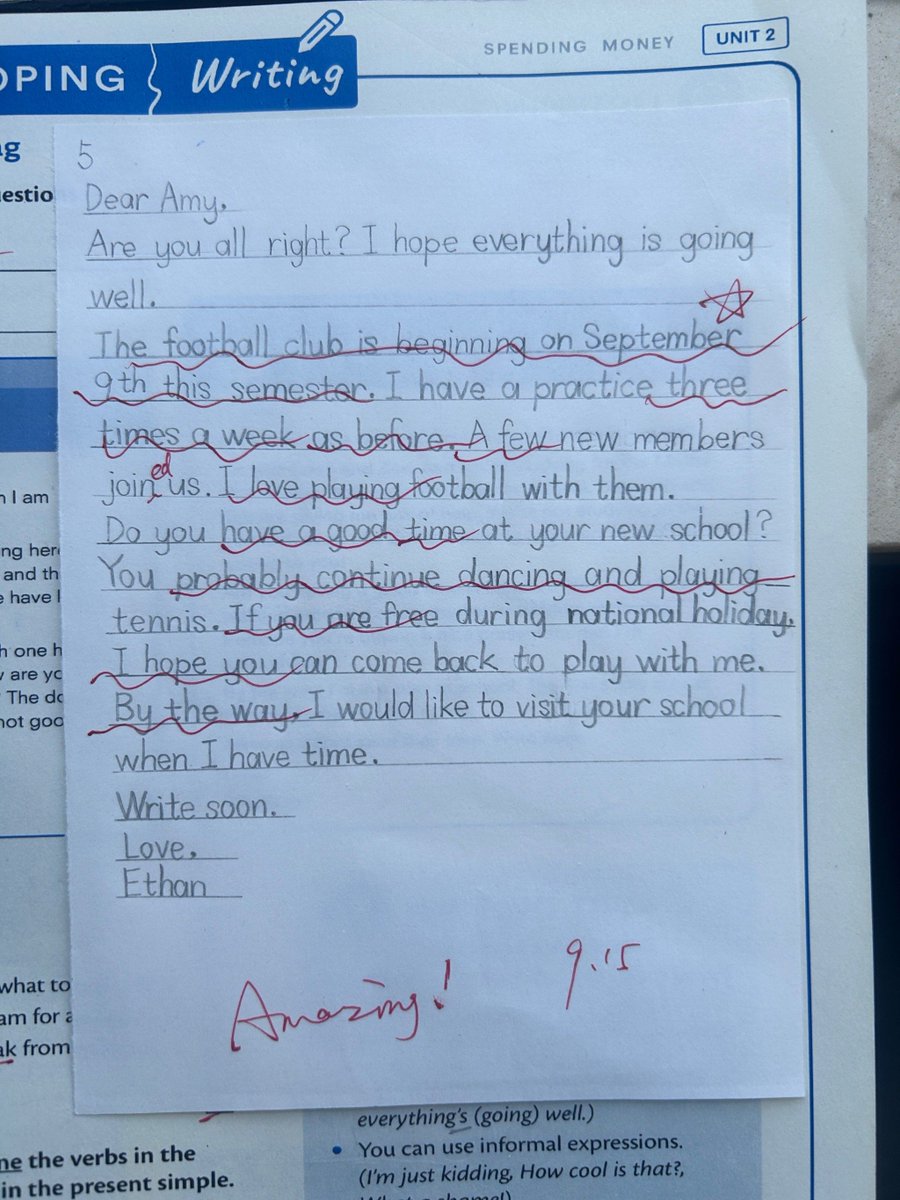 OPING Writing
SPENDING MONEY UNIT 2
5
Dear Amy,
Are you all right? I hope everything is going
well.
The football club is beginning on September
9th this semester. I have a practice three
times a week as before. A few new members
joined us. I love playing football with them.
Do you have a good time at your new school?
You probably continue dancing and playing
tennis. If you are free during national holiday,
I hope you can come back to play with me.
By the way, I would like to visit your school
when I have time.
Write soon.
Love,
Ethan
Amazing! 9.15
g
estio
n I am
ing her
and th
e have l
h one h
y are yo
The do
not goo
what to
am for a
ak from
ne the verbs in the
in the present simple.
everything's (going) well.)
• You can use informal expressions.
(I'm just kidding, How cool is that?,